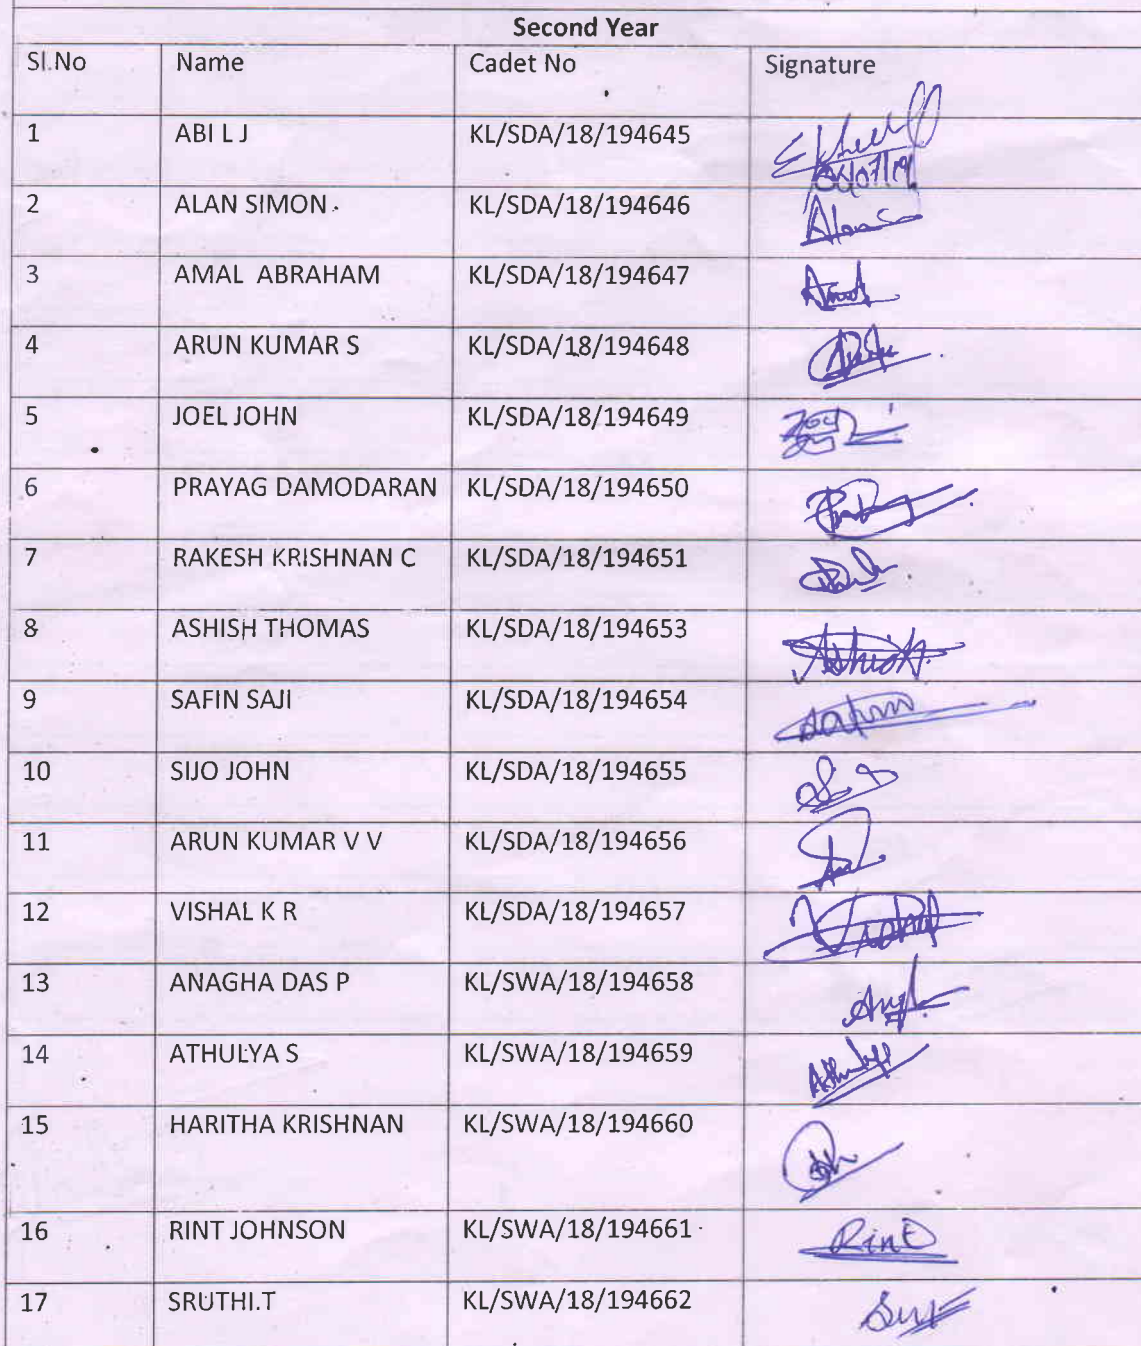 Second Year
Sl.No Name Cadet No Signature
1 ABI L J KL/SDA/18/194645
2 ALAN SIMON KL/SDA/18/194646
3 AMAL ABRAHAM KL/SDA/18/194647
4 ARUN KUMAR S KL/SDA/18/194648
5 JOEL JOHN KL/SDA/18/194649
6 PRAYAG DAMODARAN KL/SDA/18/194650
7 RAKESH KRISHNAN C KL/SDA/18/194651
8 ASHISH THOMAS KL/SDA/18/194653
9 SAFIN SAJI KL/SDA/18/194654
10 SIJO JOHN KL/SDA/18/194655
11 ARUN KUMAR V V KL/SDA/18/194656
12 VISHAL K R KL/SDA/18/194657
13 ANAGHA DAS P KL/SWA/18/194658
14 ATHULYA S KL/SWA/18/194659
15 HARITHA KRISHNAN KL/SWA/18/194660
16 RINT JOHNSON KL/SWA/18/194661 Rint
17 SRUTHI.T KL/SWA/18/194662